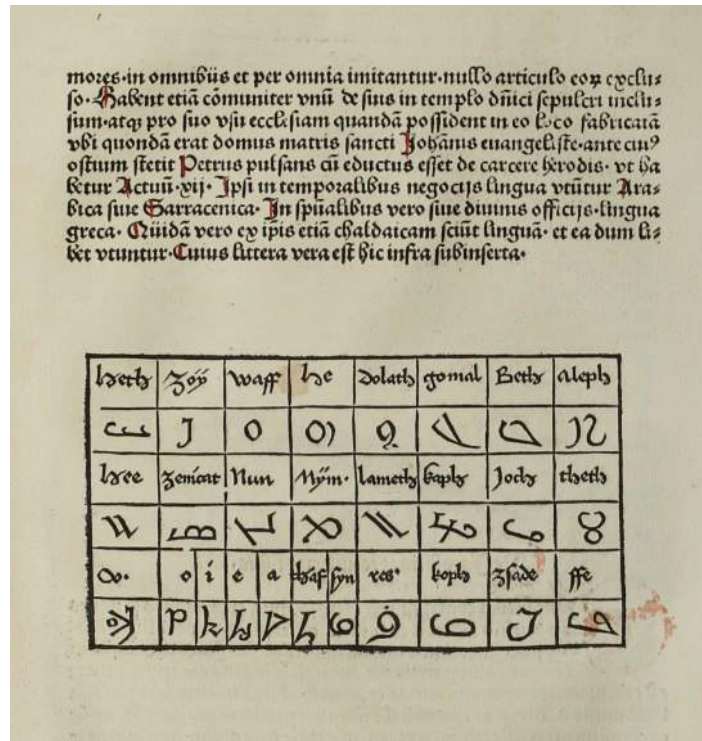 mores·in omnibüs et per omnia imitantur·nullo articulo eoꝝ exclu⸗
so·Habent etiã cõmuniter vnũ de suis in templo dñici sepulcri inclu⸗
sum·atqꝫ pro suo vsu ecclesiam quandã possident in eo loco fabricatã
vbi quondã erat domus matris sancti Johãnis euangeliste·ante cuiꝰ
ostium stetit Petrus pulsans cũ eductus esset de carcere herodis· vt ha
betur Actuũ·xij· Ipsi in temporalibus negocijs lingua vtũtur Ara⸗
bica siue Sarracenica· In spũalibus vero siue diuinis officijs·lingua
greca· Qũidã vero ex ip̃is etiã chaldaicam sciũt linguã· et ea dum li⸗
bet vtuntur·Cuius littera vera est hic infra subinserta·
heth zoÿ waff he dolath gomal Beth aleph
hee zenicat Nun Mÿm· lameth kaph Joth theth
o i e a thaf syn res· koph zsade ffe